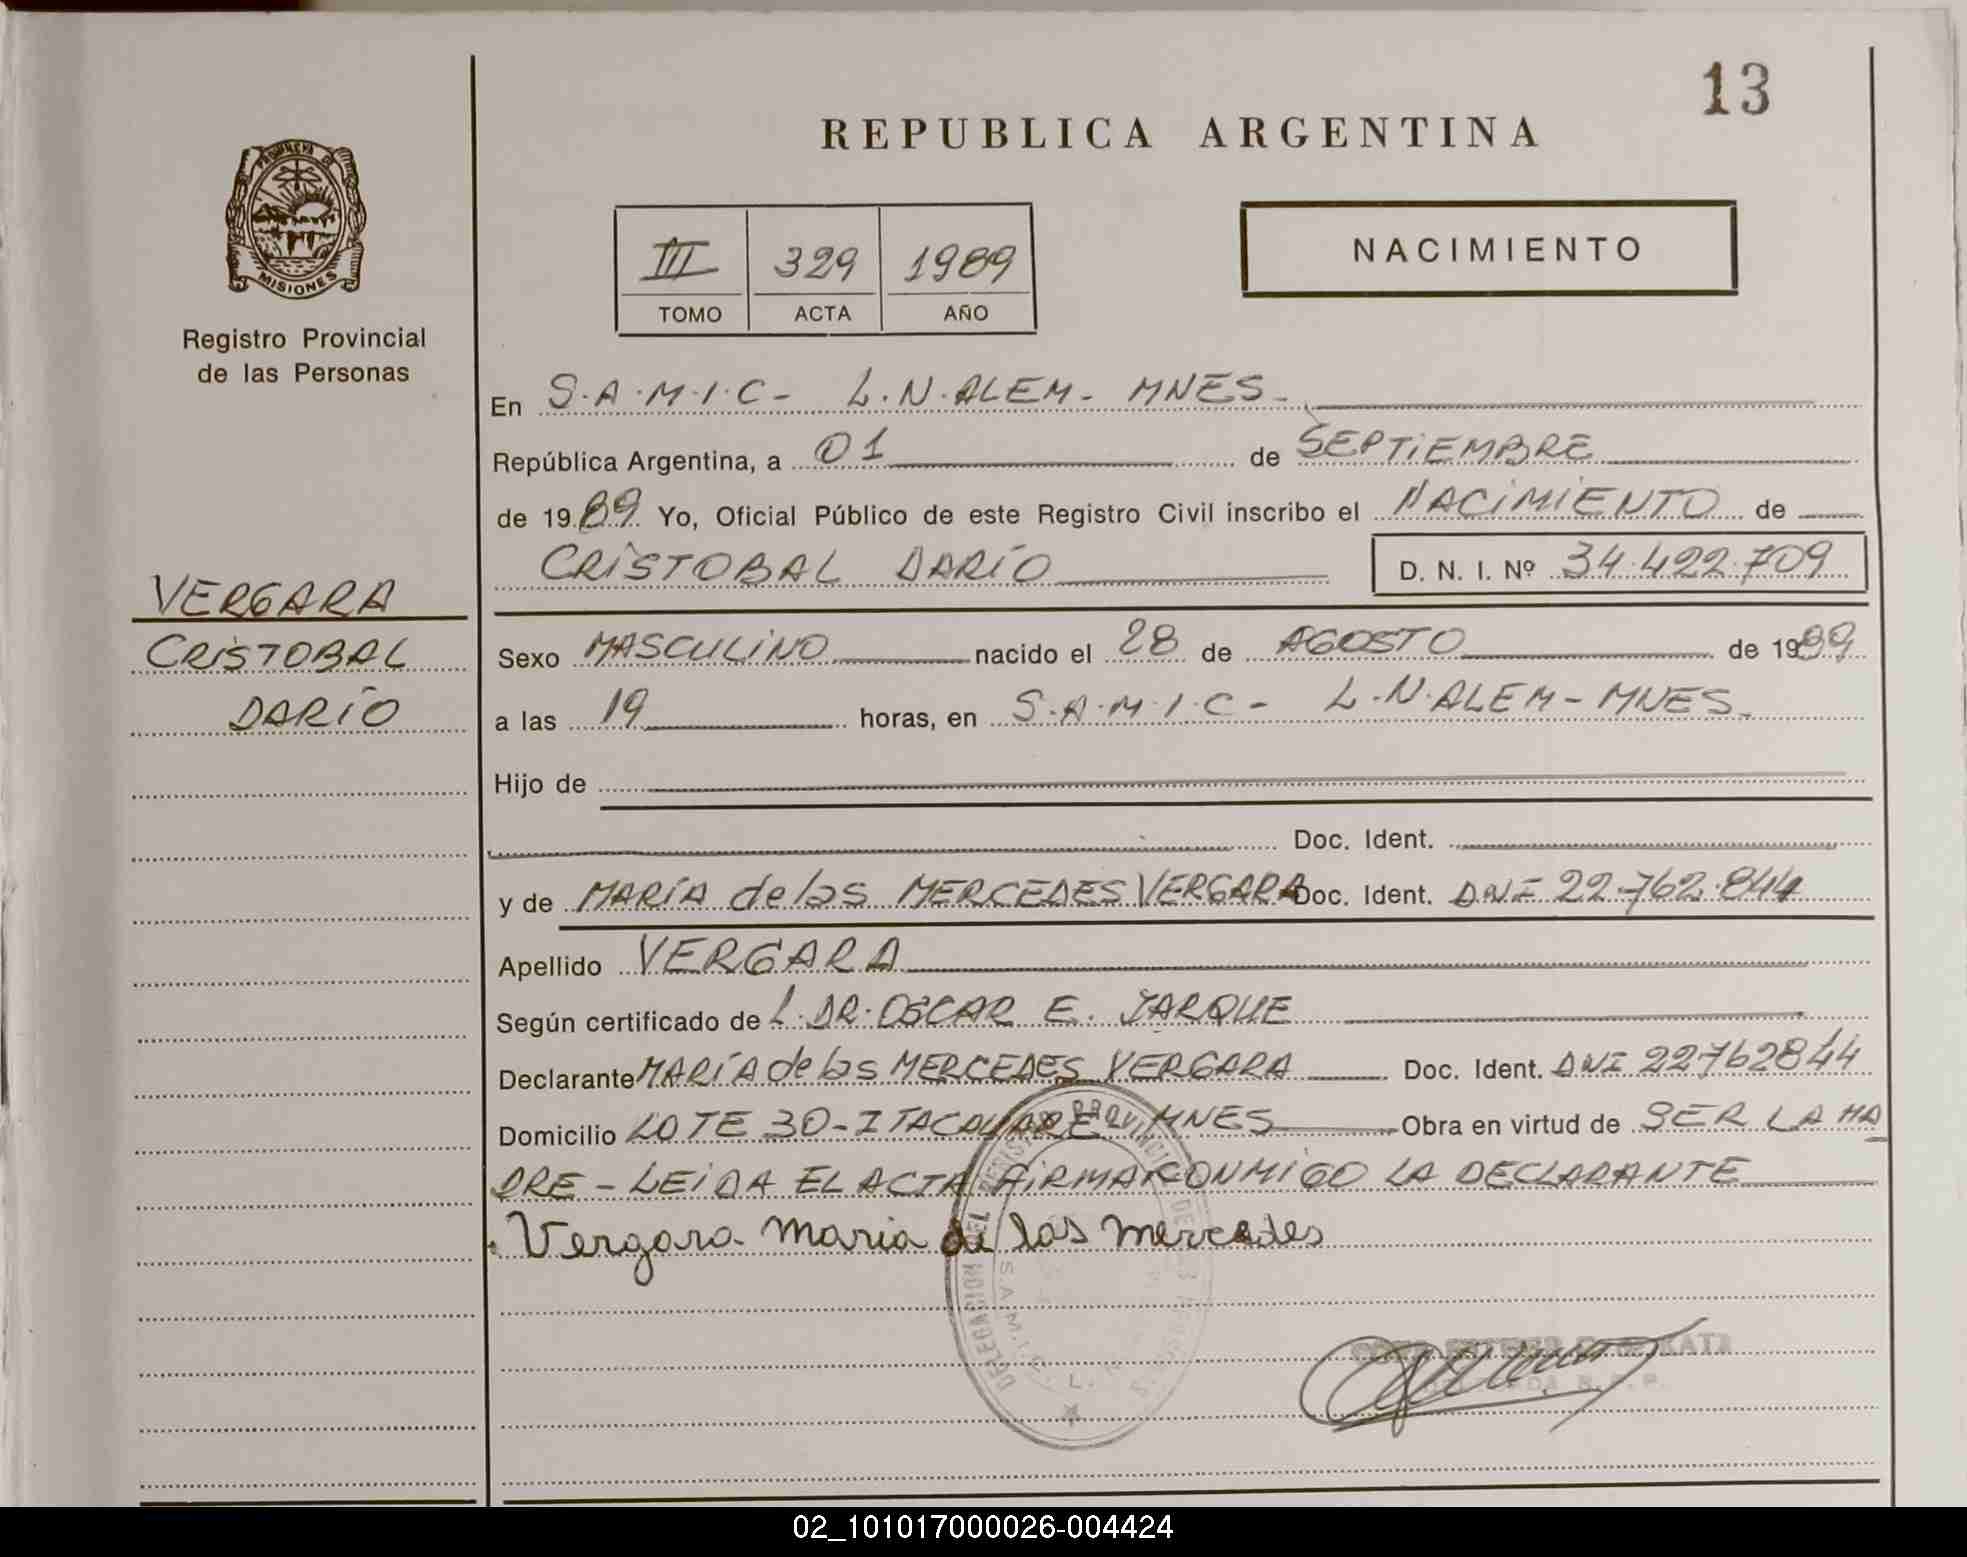 13
REPUBLICA ARGENTINA
PROVINCIA DE
MISIONES
Registro Provincial
de las Personas
III 329 1989
TOMO ACTA AÑO
NACIMIENTO
En S.A.M.I.C- L.N.ALEM- MNES-
República Argentina, a 01 de SEPTIEMBRE
de 1989 Yo, Oficial Público de este Registro Civil inscribo el NACIMIENTO de
CRISTOBAL DARÍO D. N. I. Nº 34.422.709
VERGARA
CRISTOBAL
DARÍO
Sexo MASCULINO nacido el 28 de AGOSTO de 1989
a las 19 horas, en S.A.M.I.C- L.N.ALEM-MNES-
Hijo de
Doc. Ident.
y de MARÍA de las MERCEDES VERGARA Doc. Ident. DNI 22.762.844
Apellido VERGARA
Según certificado de L. DR. OSCAR E. JARQUE
Declarante MARÍA de las MERCEDES VERGARA Doc. Ident. DNI 22762844
Domicilio LOTE 30-ITACARUARE MNES Obra en virtud de SER LA MA
DRE - LEIDA EL ACTA FIRMA CONMIGO LA DECLARANTE
Vergara Maria de las Mercedes
DELEGACION DEL REGISTRO PROVINCIAL DE LAS
S.A.M.I.C. L.
02_101017000026-004424